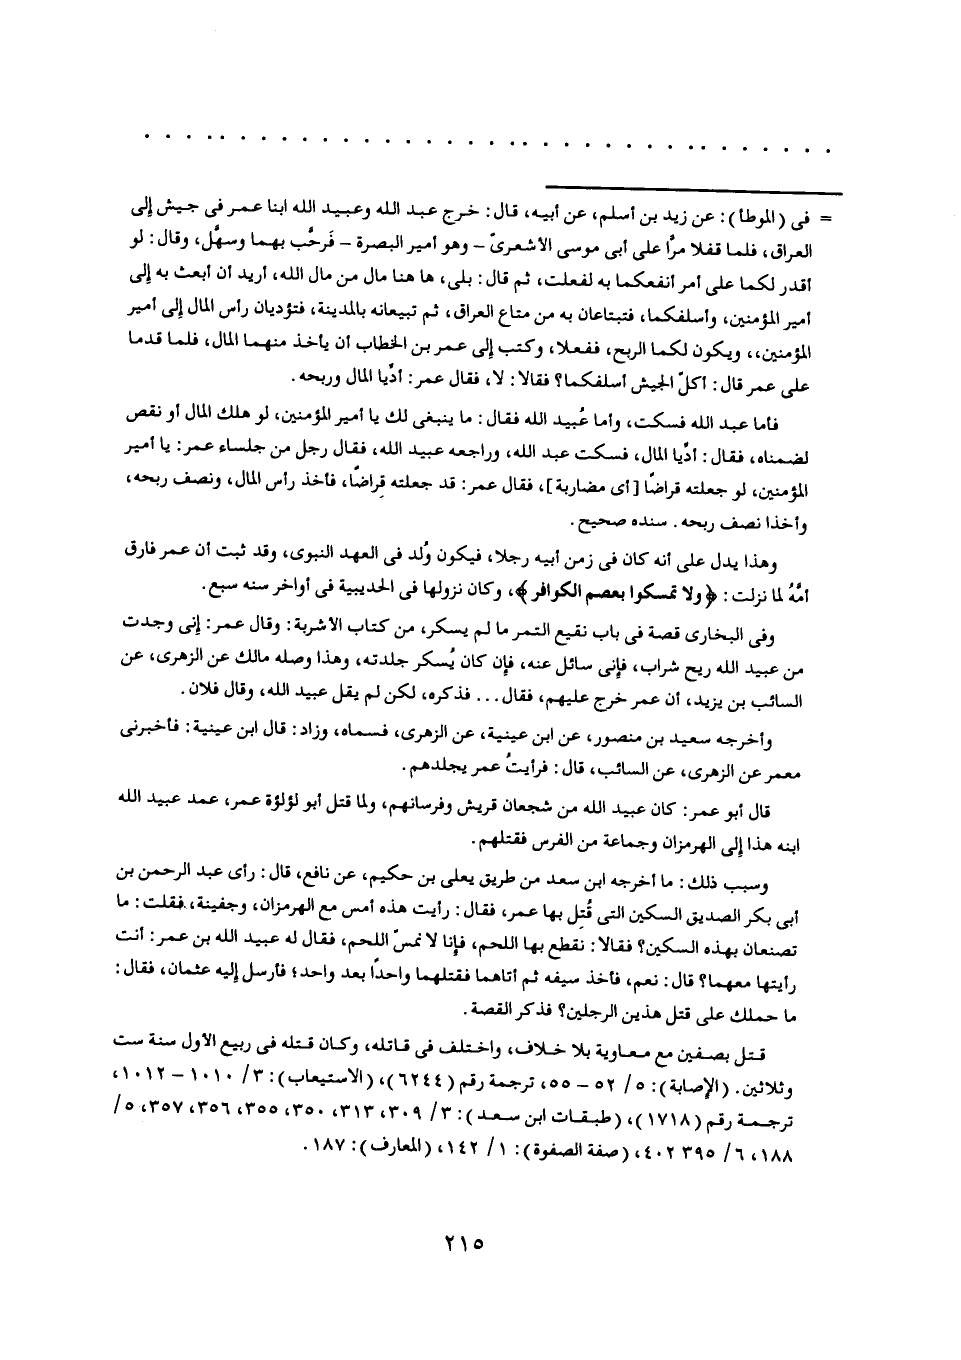 = فى (الموطأ): عن زيد بن أسلم، عن أبيه، قال: خرج عبد الله وعبيد الله ابنا عمر فى جيش إلى
العراق، فلما قفلا مرَّا على أبى موسى الأشعرىّ – وهو أمير البصرة – فَرحَّب بهما وسهَّل، وقال: لو
أقدر لكما على أمر أنفعكما به لفعلت، ثم قال: بلى، ها هنا مال من مال الله، أريد أن أبعث به إلى
أمير المؤمنين، وأسلفكما، فتبتاعان به من متاع العراق، ثم تبيعانه بالمدينة، فتؤديان رأس المال إلى أمير
المؤمنين،، ويكون لكما الربح، ففعلا، وكتب إلى عمر بن الخطاب أن يأخذ منهما المال، فلما قدما
على عمر قال: أكلّ الجيش أسلفكما؟ فقالا: لا، فقال عمر: أدِّيا المال وربحه.
فأما عبد الله فسكت، وأما عُبيد الله فقال: ما ينبغى لك يا أمير المؤمنين، لو هلك المال أو نقص
لضمناه، فقال: أدِّيا المال، فسكت عبد الله، وراجعه عبيد الله، فقال رجل من جلساء عمر: يا أمير
المؤمنين، لو جعلته قراضًا [أى مضاربة]، فقال عمر: قد جعلته قِراضًا، فأخذ رأس المال، ونصف ربحه،
وأخذا نصف ربحه. سنده صحيح.
وهذا يدل على أنه كان فى زمن أبيه رجلا، فيكون وُلد فى العهد النبوى، وقد ثبت أن عمر فارق
أمَّهُ لما نزلت: ﴿ولا تمسكوا بعصم الكوافر﴾، وكان نزولها فى الحديبية فى أواخر سنه سبع.
وفى البخارى قصة فى باب نقيع التمر ما لم يسكر، من كتاب الأشربة: وقال عمر: إنى وجدت
من عبيد الله ريح شراب، فإنى سائل عنه، فإن كان يُسكر جلدته، وهذا وصله مالك عن الزهرى، عن
السائب بن يزيد، أن عمر خرج عليهم، فقال... فذكره، لكن لم يقل عبيد الله، وقال فلان.
وأخرجه سعيد بن منصور، عن ابن عيينة، عن الزهرى، فسماه، وزاد: قال ابن عيينة: فأخبرنى
معمر عن الزهرى، عن السائب، قال: فرأيتُ عمر يجلدهم.
قال أبو عمر: كان عبيد الله من شجعان قريش وفرسانهم، ولما قتل أبو لؤلؤة عمر، عمد عبيد الله
ابنه هذا إلى الهرمزان وجماعة من الفرس فقتلهم.
وسبب ذلك: ما أخرجه ابن سعد من طريق يعلى بن حكيم، عن نافع، قال: رأى عبد الرحمن بن
أبى بكر الصديق السكين التى قُتِل بها عمر، فقال: رأيت هذه أمس مع الهرمزان، وجفينة، فقلت: ما
تصنعان بهذه السكين؟ فقالا: نقطع بها اللحم، فإنا لا نمسّ اللحم، فقال له عبيد الله بن عمر: أنت
رأيتها معهما؟ قال: نعم، فأخذ سيفه ثم أتاهما فقتلهما واحدًا بعد واحد؛ فأرسل إليه عثمان، فقال:
ما حملك على قتل هذين الرجلين؟ فذكر القصة.
قتل بصفين مع معاوية بلا خلاف، واختلف فى قاتله، وكان قتله فى ربيع الأول سنة ست
وثلاثين. (الإصابة): ٥/ ٥٢ – ٥٥، ترجمة رقم (٦٢٤٤)، (الاستيعاب): ٣/ ١٠١٠ – ١٠١٢،
ترجمة رقم (١٧١٨)، (طبقات ابن سعد): ٣/ ٣٠٩، ٣١٣، ٣٥٠، ٣٥٥، ٣٥٦، ٣٥٧، ٥/
١٨٨، ٦/ ٣٩٥ ٤٠٢، (صفة الصفوة): ١/ ١٤٢، (المعارف): ١٨٧.
٢١٥